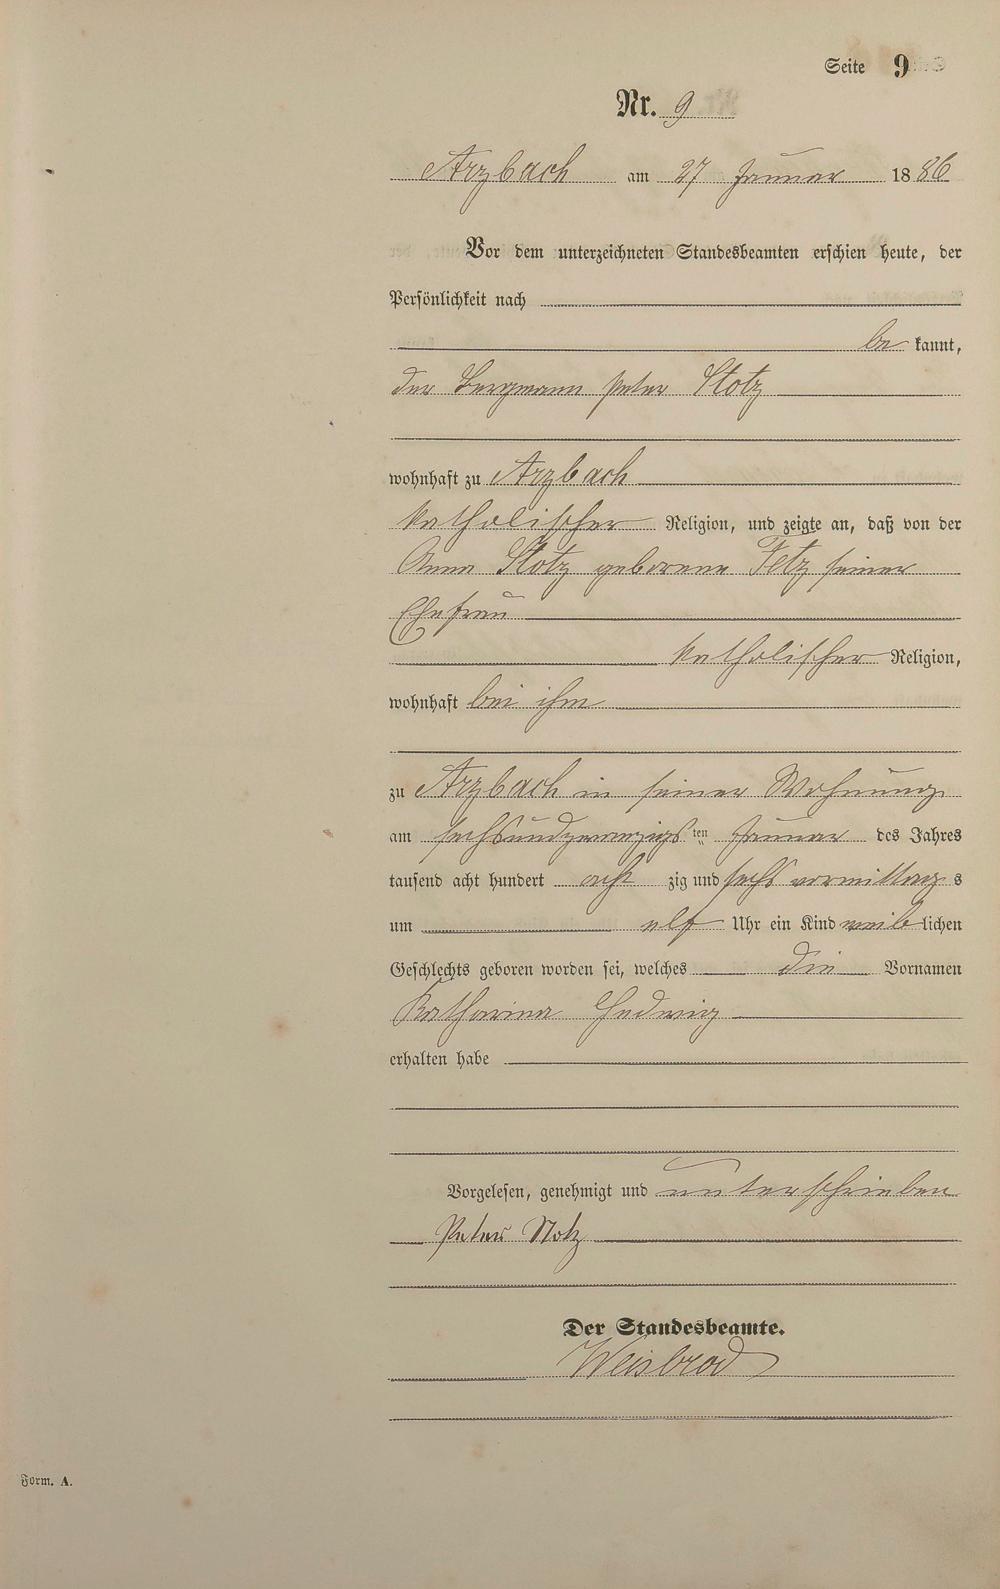 Seite 9
Nr. 9
Arzbach am 27 Januar 1886
Vor dem unterzeichneten Standesbeamten erschien heute, der
Persönlichkeit nach
be kannt,
der Bergmann Peter Stotz
wohnhaft zu Arzbach
katholischer Religion, und zeigte an, daß von der
Anna Stotz geborene Fetz seiner
Ehefrau
katholischer Religion,
wohnhaft bei ihm
zu Arzbach in seiner Wohnung
am sechsundzwanzigs ten Januar des Jahres
tausend acht hundert acht zig und sechs vormittag s
um elf Uhr ein Kind weib lichen
Geschlechts geboren worden sei, welches die Vornamen
Katharina Hedwig
erhalten habe
Vorgelesen, genehmigt und unterschrieben
Peter Stotz
Der Standesbeamte.
Weisbrod
Form. A.